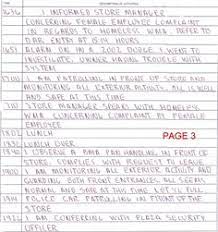 1636 I INFORMED STORE MANAGER
CONCERNING FEMALE EMPLOYEE COMPLAINT
IN REGARDS TO HOMELESS W/MA. REFER TO
DAR ENTRY AT 1504 HOURS
1651 ALARM ON IN A 2002 DODGE. I WENT TO
INVESTIGATE. OWNER HAVING TROUBLE WITH
SYSTEM
1700 I AM PATROLLING IN FRONT OF STORE AND
MONITORING ALL EXTERIOR ACTIVITY. ALL IS WELL
AND SAFE AT THIS TIME
1710 STORE MANAGER SPOKE WITH HOMELESS
W/MA CONCERNING COMPLAINT BY FEMALE
EMPLOYEE
1802 LUNCH
1832 LUNCH OVER
PAGE 3
1840 OBSERVE A BMA PAN HANDLING IN FRONT OF
STORE. COMPLIES WITH REQUEST TO LEAVE
1900 I AM MONITORING ALL EXTERIOR ACTIVITY AND
GUARDING BOTH FRONT ENTRANCES. ALL SEEMS
NORMAL AND SAFE AT THIS TIME
POLICE CAR PATROLLING IN FRONT OF THE
STORE
I AM CONFERRING WITH PLAZA SECURITY
OFFICER